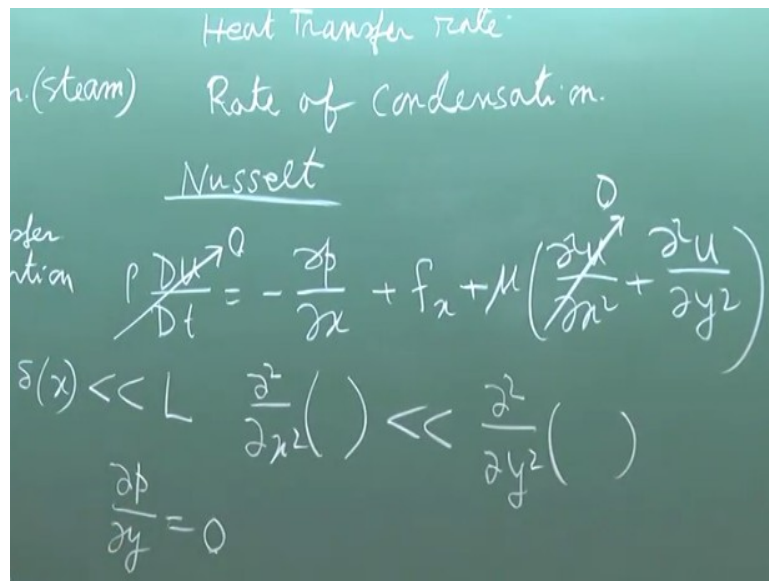 Heat Transfer rate
(steam) Rate of condensation.
Nusselt
ρ Du/Dt → 0 = - ∂p/∂x + fₓ + μ (∂²u/∂x² → 0 + ∂²u/∂y²)
δ(x) << L ∂²/∂x² ( ) << ∂²/∂y² ( )
∂p/∂y = 0